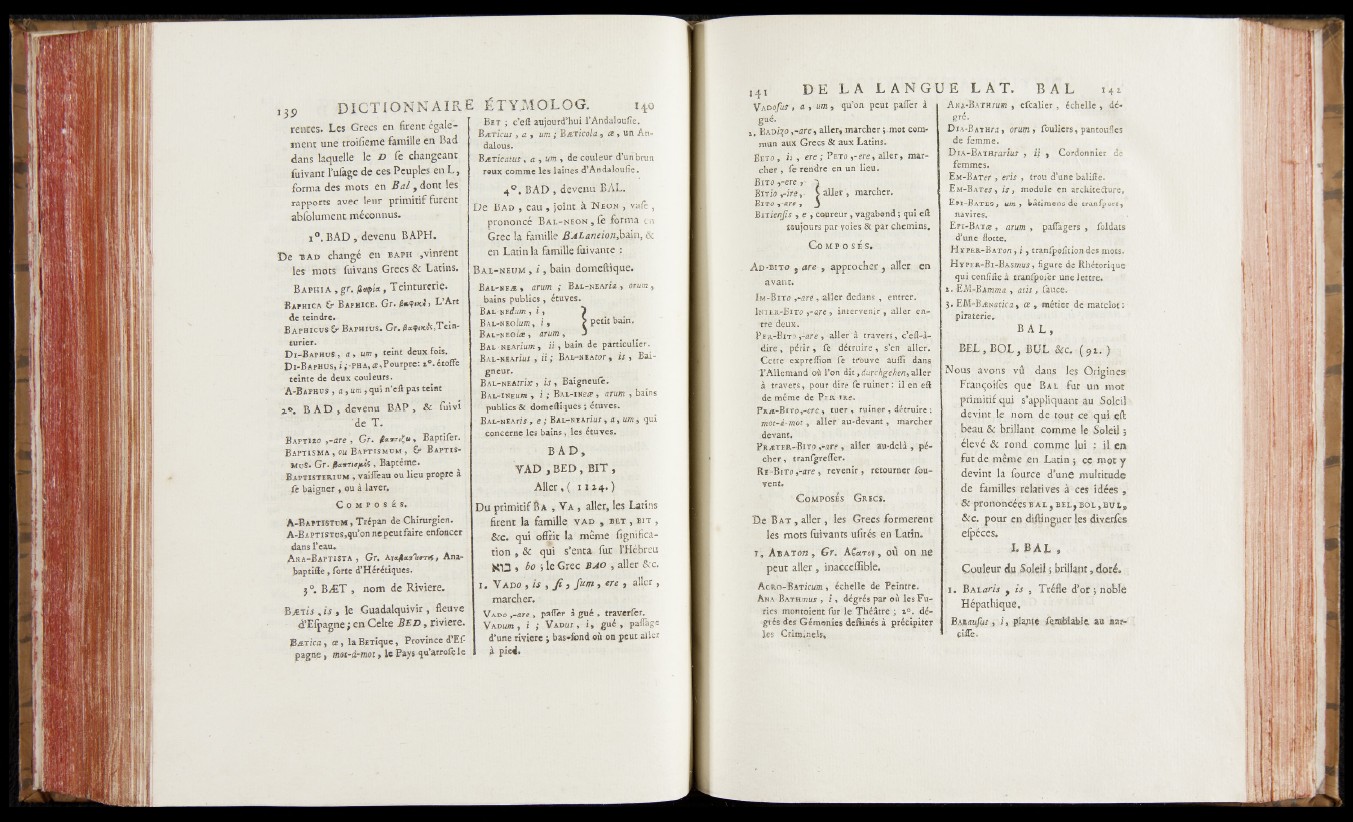 139 DICTIONNAIRE ÉTYMOLOG. 140
rentes. Les Grecs en firent égale-
ment une troifieme famille en Bad
dans laquelle le D fe changeant
fuivant l'ufage de ces Peuples en L,
forma des mots en Bal, dont les
rapports avec leur primitif furent
abfolument méconnus.
1°. BAD, devenu BAPH.
De BAD changé en BAPH, vinrent
les mots fuivans Grecs & Latins.
BAPHIA, gr. βαφία, Teinturerie.
BAPHICA & BAPHICE. Gr. βαφική; L'Art
de teindre.
BAPHICUS & BAPHIUS. Gr. βαφικός, Tein-
turier.
DI-BAPHUS, a, um, teint deux fois.
DI-BAPHUS, i;-PHA, æ, Pourpre: 2°. étoffe
teinte de deux couleurs.
A-BAPHUS, a, um, qui n'eft pas teint
2°. BAD, devenu BAP, & fuivi
de T.
BAPTIZO,-are, Gr. βαπτίζω, Baptifer.
BAPTISMA, ou BAPTISMUM, & BAPTIS-
MUS. Gr. βαπτισμός, Baptême.
BAPTISTERIUM, vaiffeau ou lieu propre à
fe baigner, ou à laver.
COMPOSÉS.
A-BAPTISTUM, Trépan de Chirurgien.
A-BAPTISTUS, qu'on ne peut faire enfoncer
dans l'eau.
ANA-BAPTISTA, Gr. Αναβαπτιστής, Ana-
baptifte, forte d'Hérétiques.
3°. BÆT, nom de Riviere.
BÆTIS, is, le Guadalquivir, fleuve
d'Efpagne; en Celte BED, riviere.
BÆTICA, æ, la BETique, Province d'Ef-
pagne, mot-à-mot, le Pays qu'arrofe le
BET; c'eft aujourd'hui l'Andaloufie.
BÆTicus, a, um; BÆTicola, æ, un An-
dalous.
BÆTicatus, a, um, de couleur d'un brun
roux comme les laines d'Andaloufie.
4°. BAD, devenu BAL.
De BAD, eau, joint à NEON, vafe,
prononcé BAL-NEON, fe forma en
Grec la famille BALaneion, bain, &
en Latin la famille fuivante:
BAL-NEUM, i, bain domeftique.
BAL-NEÆ, arum; BAL-NEARIA, orum,
bains publics, étuves.
BAL-NEdum, i,
BAL-NEOlum, i, petit bain.
BAL-NEOlæ, arum,
BAL-NEArium, ii, bain de particulier.
BAL-NEArius, ii; BAL-NEAtor, is, Bai-
gneur.
BAL-NEAtrix, is, Baigneufe.
BAL-INEum, i; BAL-INEæ, arum, bains
publics & domeftiques; étuves.
BAL-NEAris, e; BAL-NEArius, a, um, qui
concerne les bains, les étuves.
BAD,
VAD, BED, BIT,
Aller, ( 1124.)
Du primitif BA, VA, aller, les Latins
firent la famille VAD, BET, BIT,
&c. qui offrit la même fignifica-
tion, & qui s'enta fur l'Hébreu
בוא, bo; le Grec BAO, aller &c.
1. VADO, is, fi, fum, ere, aller,
marcher.
VADO,-are, paffer à gué, traverfer.
VADUM, i; VADUS, i, gué, paffage
d'une riviere; bas-fond où on peut aller
à pied.
141 DE LA LANGUE LAT. BAL 142
VADofus, a, um, qu'on peut paffer à
gué.
2. BADIZO,-are, aller, marcher; mot com-
mun aux Grecs & aux Latins.
BETO, is, ere; PETO,-ere, aller, mar-
cher, fe rendre en un lieu.
BITO,-ere,
BITIO,-ire, aller, marcher.
BITO,-are,
BITienfis, e, coureur, vagabond; qui eft
toujours par voies & par chemins.
COMPOSÉS.
AD-BITO, are, approcher, aller en
avant.
IM-BITO,-are, aller dedans, entrer.
INTER-BITO,-are, intervenir, aller en-
tre deux.
PER-BITO,-are, aller à travers, c'eft-à-
dire, périr, fe détruire, s'en aller.
Cette expreffion fe trouve auffi dans
l'Allemand où l'on dit, durchgehen, aller
à travers, pour dire fe ruiner: il en eft
de même de PER ire.
PRÆ-BITO,-ere, tuer, ruiner, détruire:
mot-à-mot, aller au-devant, marcher
devant.
PRÆTER-BITO,-are, aller au-delà, pé-
cher, tranfgreffer.
RE-BITO,-are, revenir, retourner fou-
vent.
COMPOSÉS GRECS.
De BAT, aller, les Grecs formerent
les mots fuivants ufités en Latin.
1. ABATON, Gr. Αβατος, où on ne
peut aller, inacceffible.
ACRO-BATicum, échelle de Peintre.
ANA BATHmus, i, dégrés par où les Fu-
ries montoient fur le Théâtre; 2°. dé-
grés des Gémonies deftinés à précipiter
les Criminels.
ANA-BATHrum, efcalier, échelle, dé-
gré.
DIA-BATHra, orum, fouliers, pantoufles
de femme.
DIA-BATHrarius, ii, Cordonnier de
femmes.
EM-BATer, eris, trou d'une balifte.
EM-BATes, is, module en architecture,
EPI-BATES, um, bâtimens de tranfport,
navires.
EPI-BATÆ, arum, paffagers, foldats
d'une flotte.
HYPER-BATon, i, tranfpofition des mots.
HYPER-BI-BASmus, figure de Rhétorique
qui confifte à tranfpofer une lettre.
2. EM-BAmma, atis, fauce.
3. EM-BÆNatica, æ, métier de matelot:
piraterie.
BAL,
BEL, BOL, BUL &c. (92.)
Nous avons vû dans les Origines
Françoifes que BAL fut un mot
primitif qui s'appliquant au Soleil
devint le nom de tout ce qui eft
beau & brillant comme le Soleil;
élevé & rond comme lui: il en
fut de même en Latin; ce mot y
devint la fource d'une multitude
de familles relatives à ces idées,
& prononcées BAL, BEL, BOL, BUL,
&c. pour en diftinguer les diverfes
efpéces.
I. BAL,
Couleur du Soleil; brillant, doré.
1. BALaris, is, Tréfle d'or; noble
Hépathique,
BARaufus, i, plante femblable au nar-
ciffe.